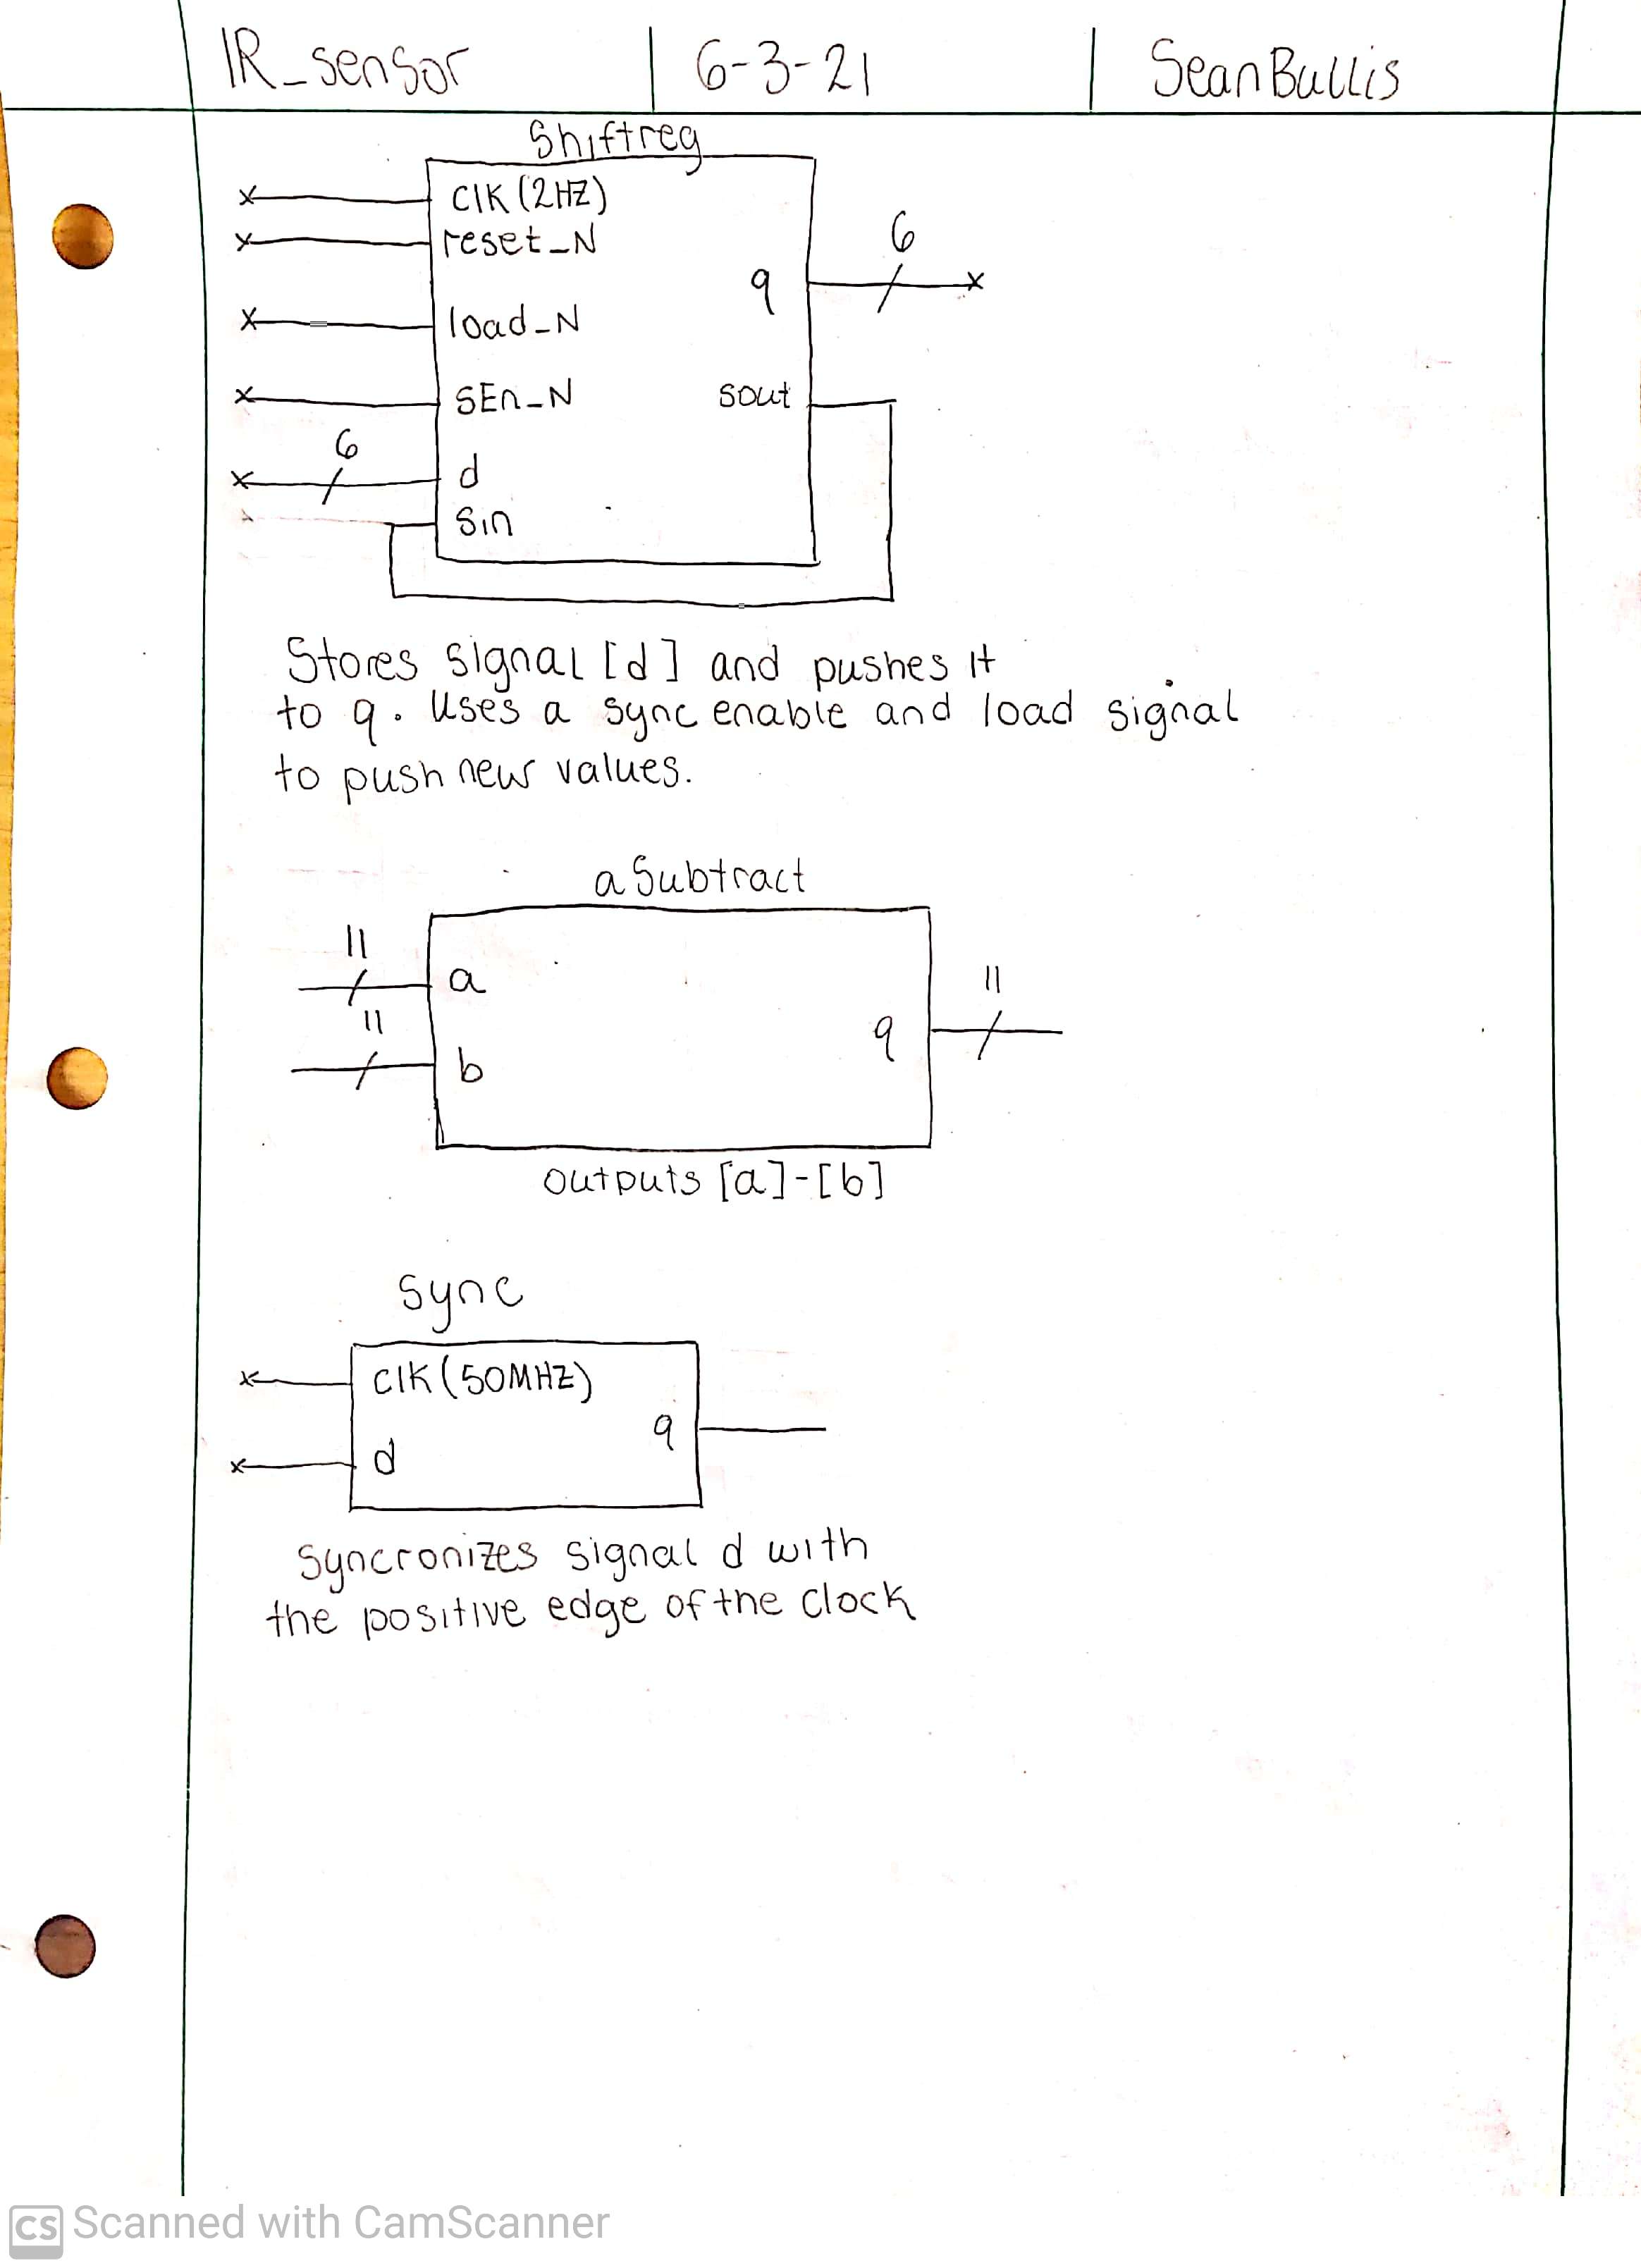 IR_sensor | 6-3-21 | Sean Bullis
Shiftreg
Clk (2HZ)
reset_N
6
q
load_N
SEn_N
sout
6
d
Sin
Stores signal [d] and pushes it
to q. Uses a sync enable and load signal
to push new values.
aSubtract
11
a
11
11
q
b
outputs [a]-[b]
Sync
clk (50MHZ)
q
d
Syncronizes signal d with
the positive edge of the clock
CS Scanned with CamScanner